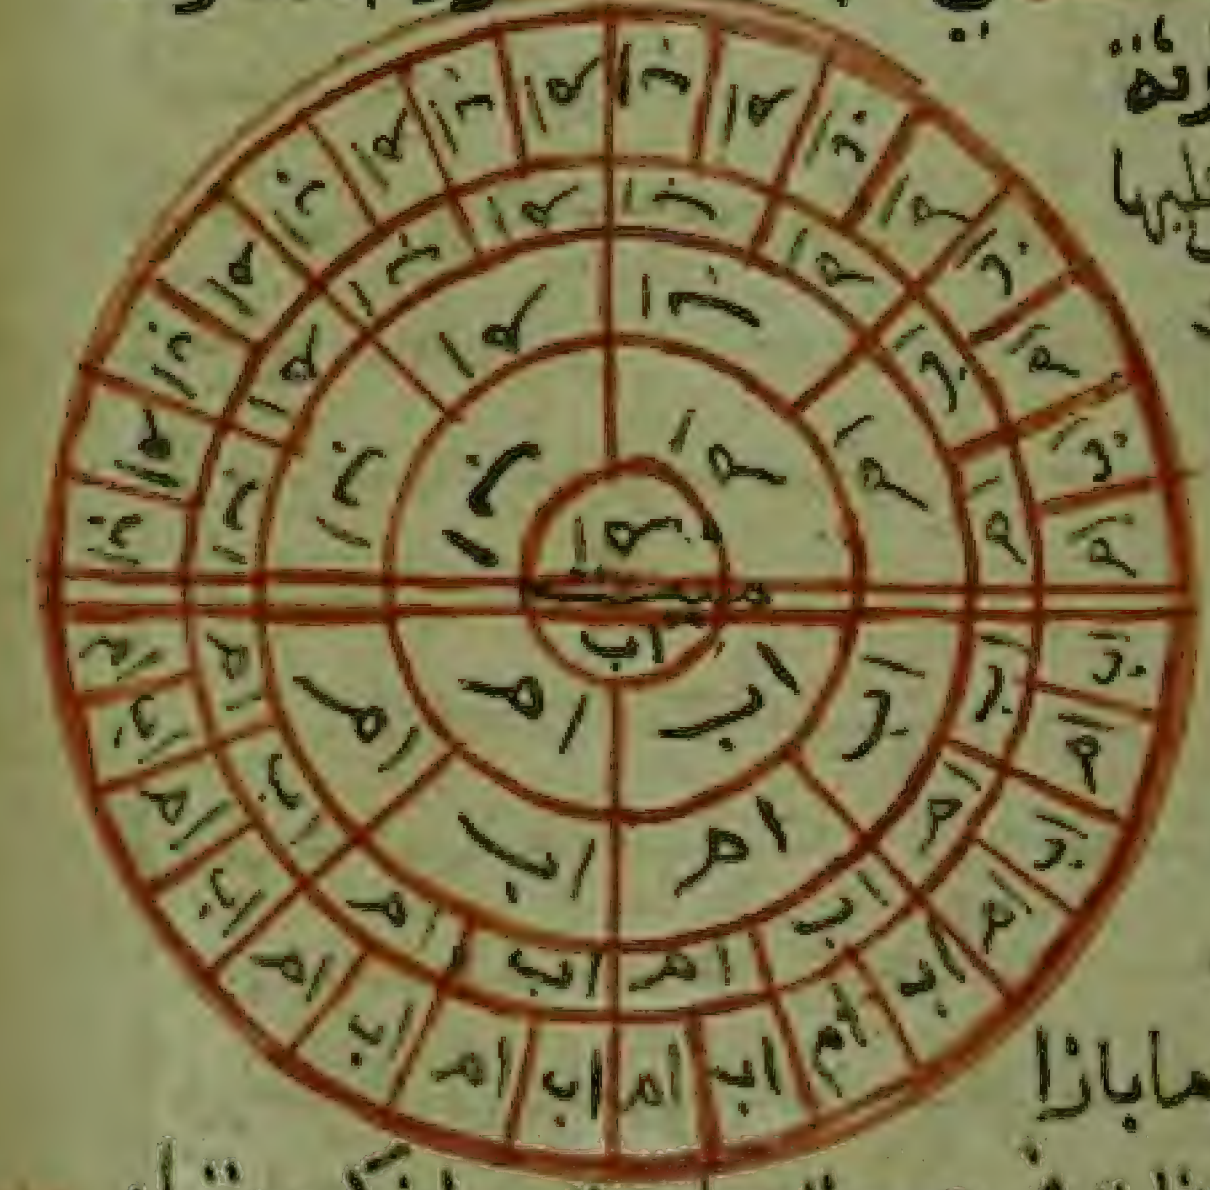 عليها
اب ام اب ام اب ام اب ام اب ام اب ام اب ام اب ام
اب ام اب ام اب ام اب ام
اب ام اب ام
اب ام
ام
ميت
اب
اب ام
اب ام اب ام
اب ام اب ام اب ام اب ام
اب ام اب ام اب ام اب ام اب ام اب ام اب ام اب ام